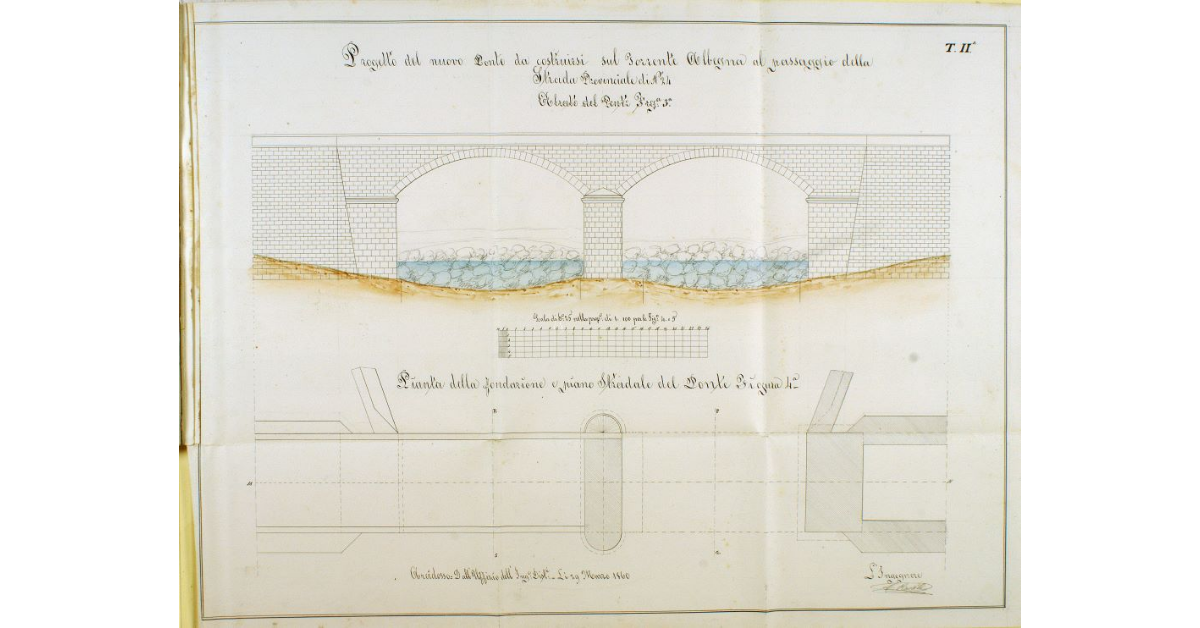 T. II.ª
Progetto del nuovo Ponte da costruirsi sul Torrente Albegna al passaggio della
Strada Provinciale di N.º 24
del Ponte Fig.ª 3.ª
Scala di nella prop.e di 1 100 per le Fig.e 4 e 3
Pianta della fondazione e piano Stradale del Ponte Figura 4.ª
B
P
M
Arcidosso Dall'Uffizio dell'Ing.e Dist.e Li 29 Marzo 1860
L'Ingegnere